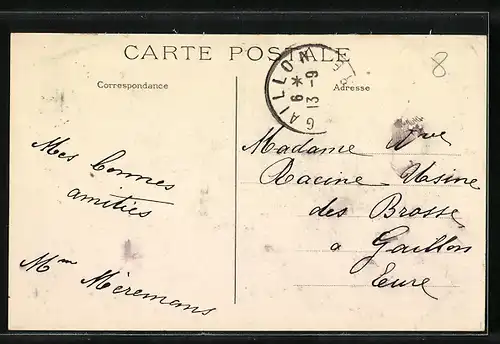 CARTE POSTALE
Correspondance
Adresse
8
GAILLON
6 *
13-9
Mes bonnes
amitiés
Mme Méremans
Madame Vve
Racine Usine
des Brosse
a Gaillon
Eure